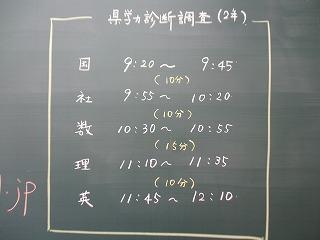 県学力診断調査(2年)
国 9:20〜 9:45
(10分)
社 9:55〜 10:20
(10分)
数 10:30〜 10:55
(15分)
理 11:10〜 11:35
(10分)
英 11:45〜 12:10
.jp